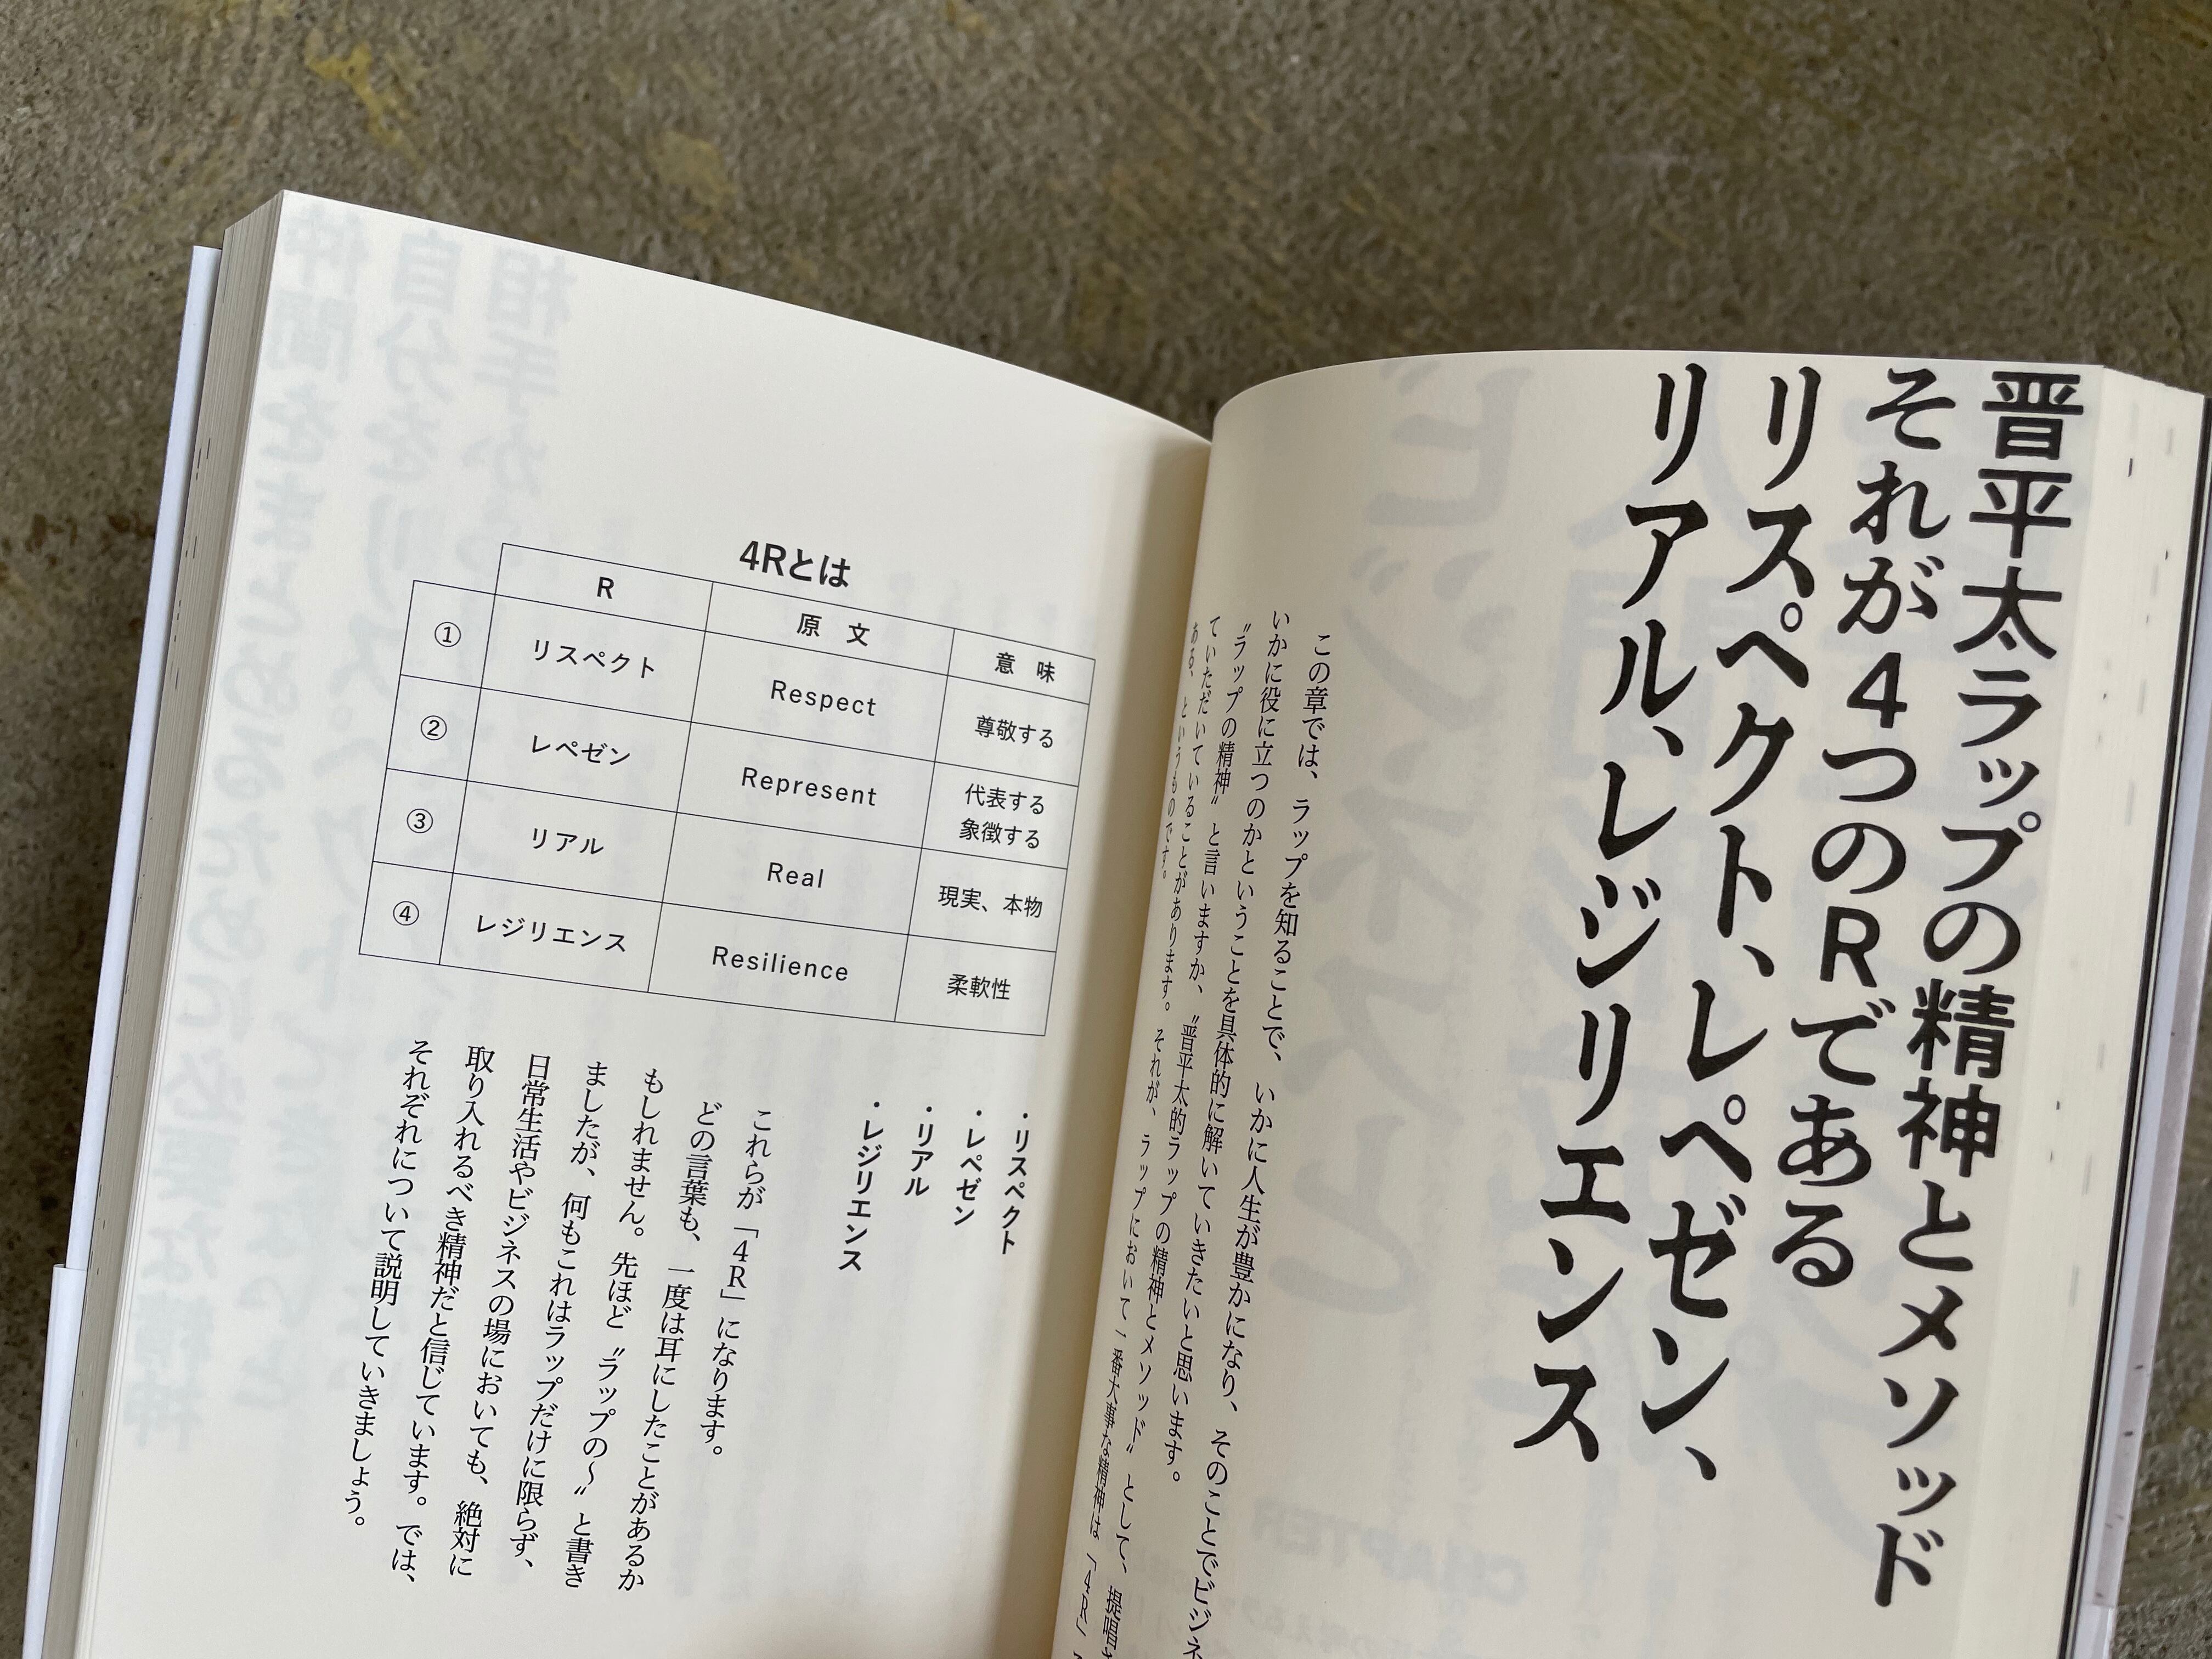 晋平太ラップの精神とメソッド
それが4つのRである
リスペクト、レペゼン、
リアル、レジリエンス
この章では、ラップを知ることで、いかに人生が豊かになり、そのことでビジネ
いかに役に立つのかということを具体的に解いていきたいと思います。
〝ラップの精神〟と言いますか、〝晋平太的ラップの精神とメソッド〟として、提唱
ていただいていることがあります。それが、ラップにおいて一番大事な精神は「4R」
ある、というものです。
4Rとは
R 原文 意味
① リスペクト Respect 尊敬する
② レペゼン Represent 代表する
象徴する
③ リアル Real 現実、本物
④ レジリエンス Resilience 柔軟性
・リスペクト
・レペゼン
・リアル
・レジリエンス
これらが「4R」になります。
どの言葉も、一度は耳にしたことがあるか
もしれません。先ほど〝ラップの〜〟と書き
ましたが、何もこれはラップだけに限らず、
日常生活やビジネスの場においても、絶対に
取り入れるべき精神だと信じています。では、
それぞれについて説明していきましょう。